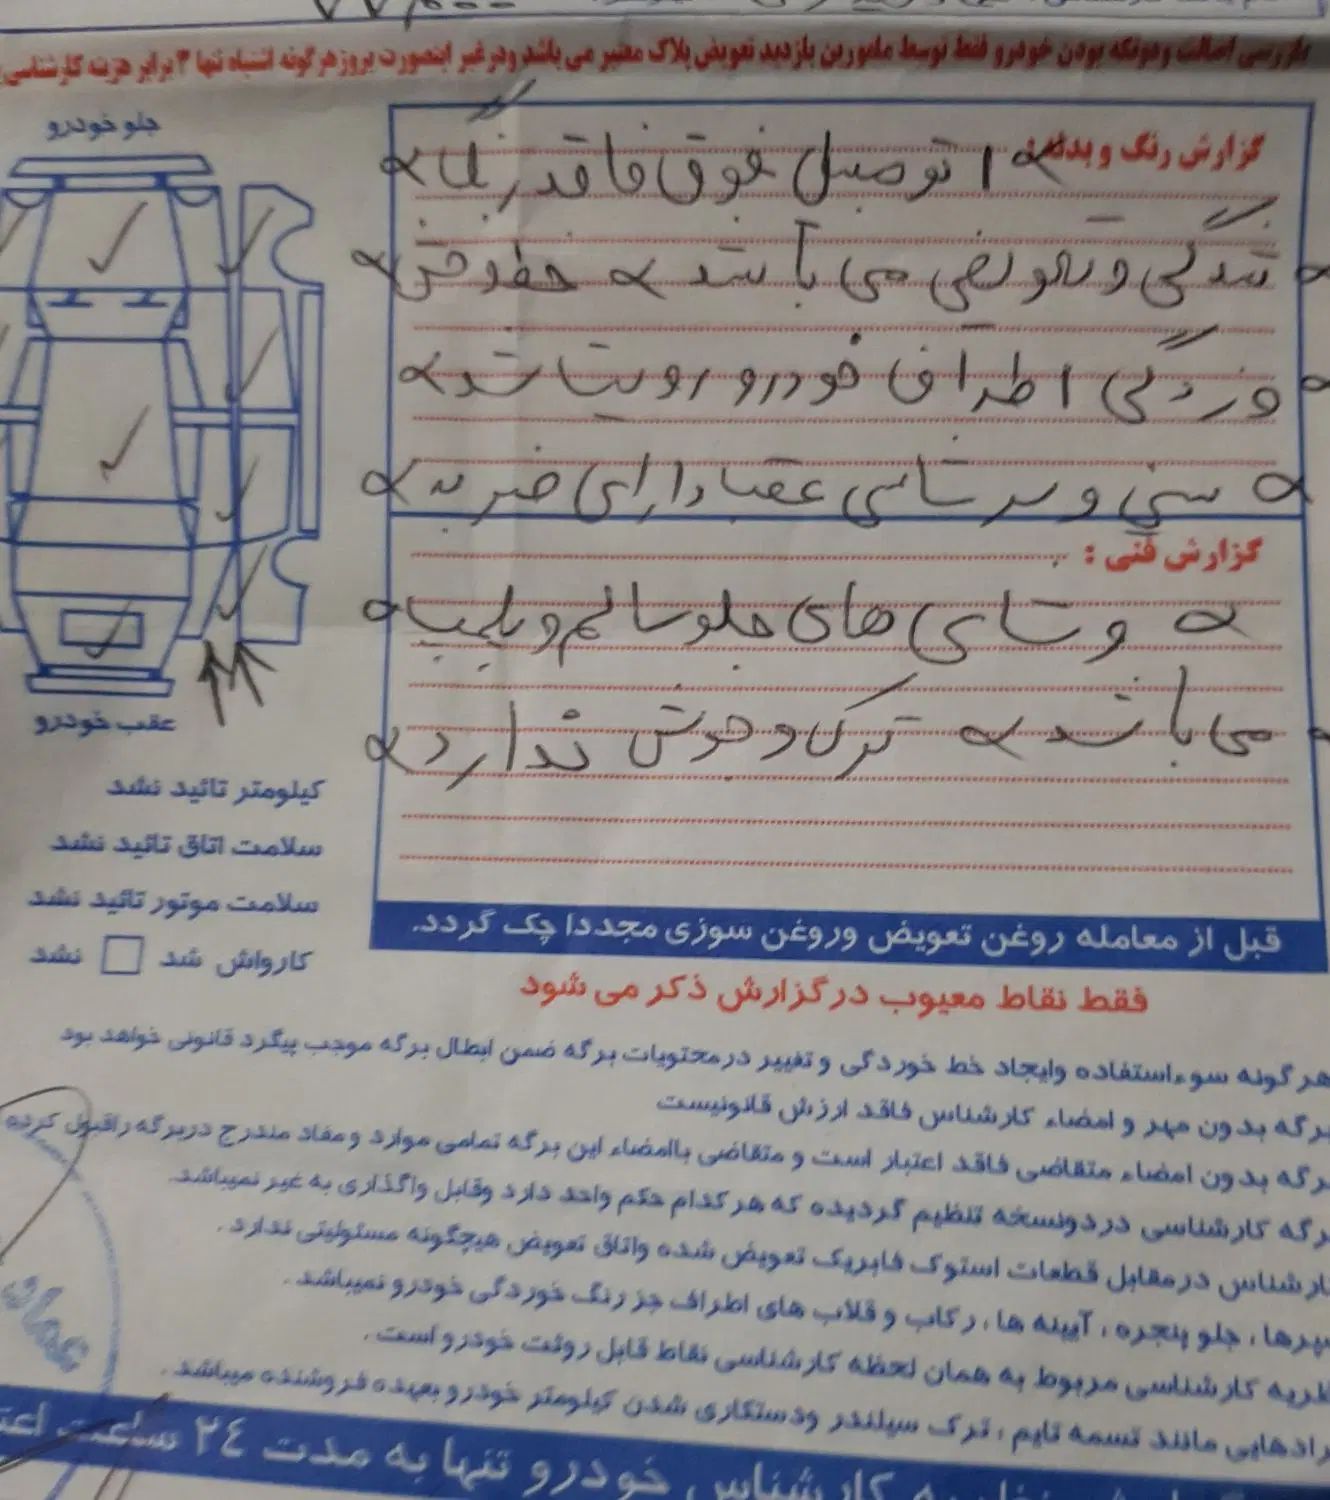 بازرسی اصالت ودوتکه بودن خودرو فقط توسط مامورین بازدید تعویض پلاک معتبر می باشد ودرغیر اینصورت بروزهرگونه اشتباه تنها ۳ برابر هزینه کارشناسی
جلو خودرو
گزارش رنگ و بدنه:
اتومبیل فوق فاقد رنگ
شدگی و تعویضی می باشد خط و خش
و زدگی اطراف خودرو رویت شد
سینی و سر شاسی عقب دارای ضربه
گزارش فنی :
و شاسی های جلو سالم و پلمپ
می باشد ترک و جوش ندارد
عقب خودرو
کیلومتر تائید نشد
سلامت اتاق تائید نشد
سلامت موتور تائید نشد
کارواش شد نشد
قبل از معامله روغن تعویض وروغن سوزی مجددا چک گردد.
فقط نقاط معیوب درگزارش ذکر می شود
هرگونه سوءاستفاده وایجاد خط خوردگی و تغییر درمحتویات برگه ضمن ابطال برگه موجب پیگرد قانونی خواهد بود
برگه بدون مهر و امضاء کارشناس فاقد ارزش قانونیست
برگه بدون امضاء متقاضی فاقد اعتبار است و متقاضی باامضاء این برگه تمامی موارد و مفاد مندرج دربرگه راقبول کرده
برگه کارشناسی دردونسخه تنظیم گردیده که هرکدام حکم واحد دارد وقابل واگذاری به غیر نمیباشد.
کارشناس درمقابل قطعات استوک فابریک تعویض شده واتاق تعویض هیچگونه مسئولیتی ندارد.
سپرها ، جلو پنجره ، آیینه ها ، رکاب و قلاب های اطراف جز رنگ خوردگی خودرو نمیباشد.
نظریه کارشناسی مربوط به همان لحظه کارشناسی نقاط قابل روئت خودرو است.
ایرادهایی مانند تسمه تایم ، ترک سیلندر ودستکاری شدن کیلومتر خودرو بعهده فروشنده میباشد.
کارشناس خودرو تنها به مدت ۲٤ ساعت